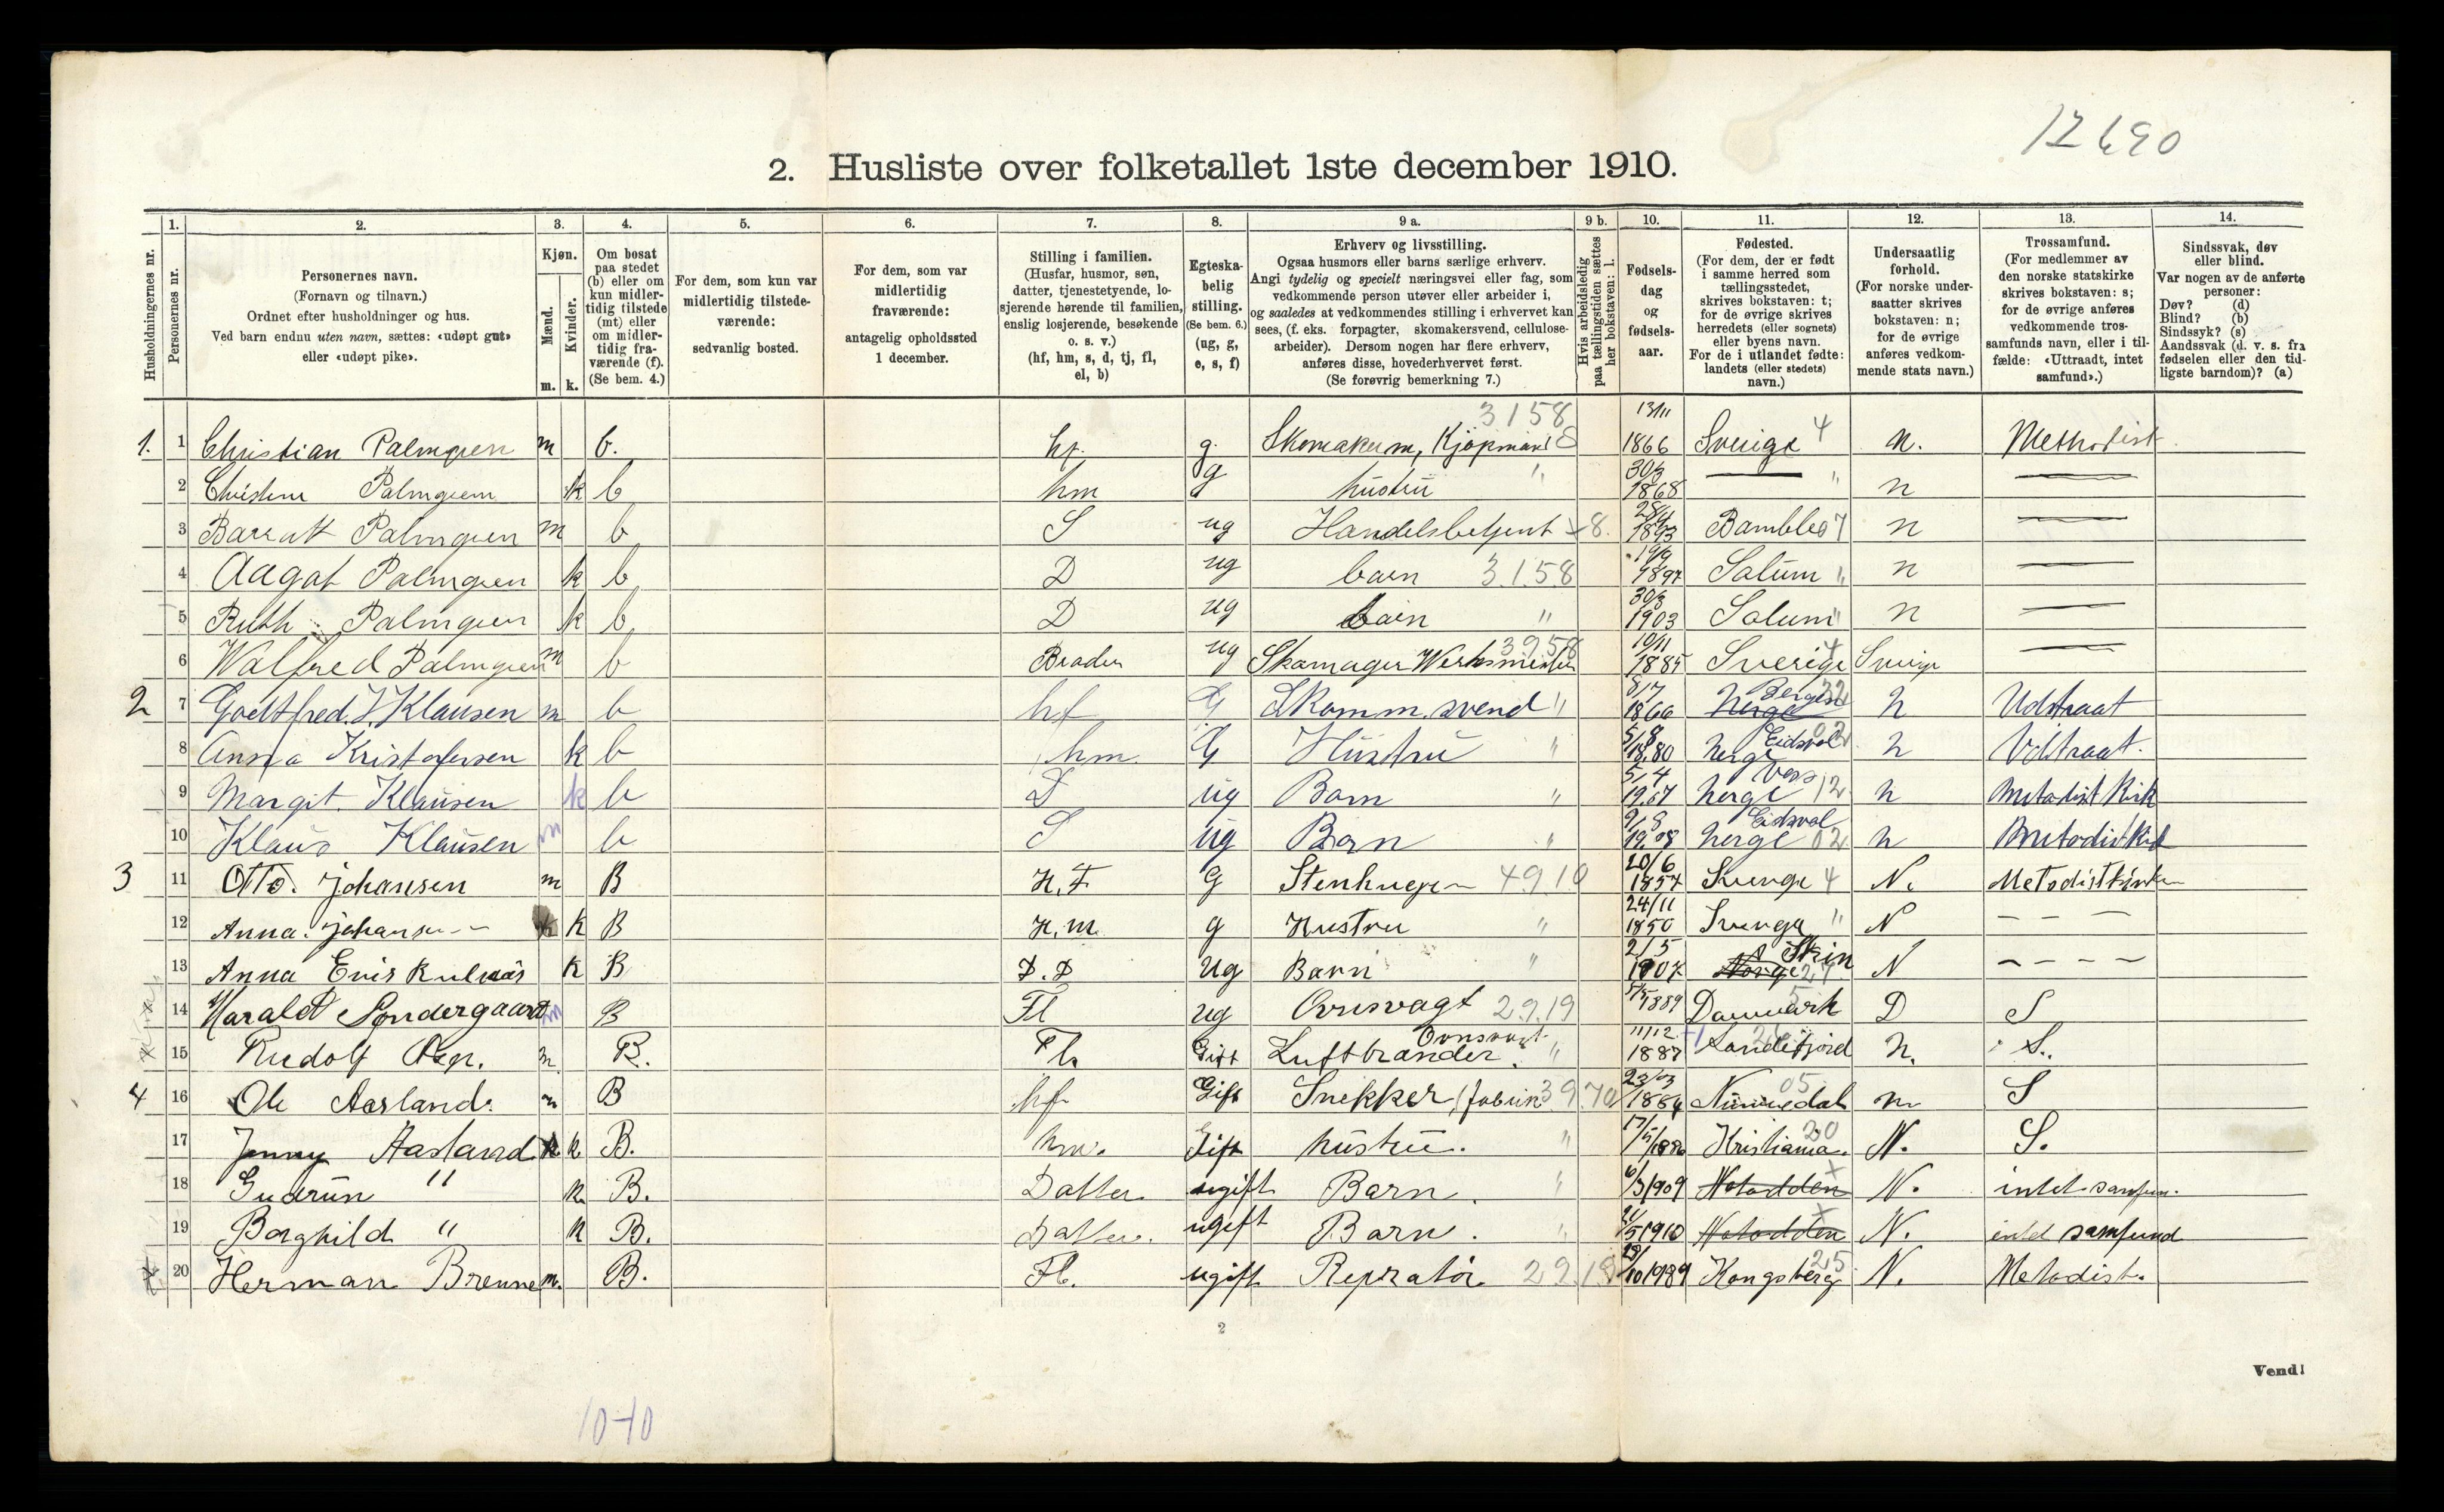 12690
2. Husliste over folketallet 1ste december 1910.
Husholdningernes nr.
1.
Personernes nr.
2.
Personernes navn.
(Fornavn og tilnavn.)
Ordnet efter husholdninger og hus.
Ved barn endnu uten navn, sættes: «udøpt gut»
eller «udøpt pike».
3.
Kjøn.
Mænd.
Kvinder.
m. k.
4.
Om bosat
paa stedet
(b) eller om
kun midler-
tidig tilstede
(mt) eller
om midler-
tidig fra-
værende (f).
(Se bem. 4.)
5.
For dem, som kun var
midlertidig tilstede-
værende:
sedvanlig bosted.
6.
For dem, som var
midlertidig
fraværende:
antagelig opholdssted
1 december.
7.
Stilling i familien.
(Husfar, husmor, søn,
datter, tjenestetyende, lo-
sjerende hørende til familien,
enslig losjerende, besøkende
o. s. v.)
(hf, hm, s, d, tj, fl,
el, b)
8.
Egteska-
belig
stilling.
(Se bem. 6.)
(ug, g,
e, s, f)
9 a.
Erhverv og livsstilling.
Ogsaa husmors eller barns særlige erhverv.
Angi tydelig og specielt næringsvei eller fag, som
vedkommende person utøver eller arbeider i,
og saaledes at vedkommendes stilling i erhvervet kan
sees, (f. eks. forpagter, skomakersvend, cellulose-
arbeider). Dersom nogen har flere erhverv,
anføres disse, hovederhvervet først.
(Se forøvrig bemerkning 7.)
9 b.
Hvis arbeidsledig
paa tællingstiden sættes
her bokstaven: l.
10.
Fødsels-
dag
og
fødsels-
aar.
11.
Fødested.
(For dem, der er født
i samme herred som
tællingsstedet,
skrives bokstaven: t;
for de øvrige skrives
herredets (eller sognets)
eller byens navn.
For de i utlandet fødte:
landets (eller stedets)
navn.)
12.
Undersaatlig
forhold.
(For norske under-
saatter skrives
bokstaven: n;
for de øvrige
anføres vedkom-
mende stats navn.)
13.
Trossamfund.
(For medlemmer av
den norske statskirke
skrives bokstaven: s;
for de øvrige anføres
vedkommende tros-
samfunds navn, eller i til-
fælde: «Uttraadt, intet
samfund».)
14.
Sindssvak, døv
eller blind.
Var nogen av de anførte
personer:
Døv? (d)
Blind? (b)
Sindssyk? (s)
Aandssvak (d. v. s. fra
fødselen eller den tid-
ligste barndom)? (a)
1. 1 Christian Palmgren m b. hf. g. Skomakerm, Kjøpmand 3158 13/11 1866 Sverige 4 n. Methodist
2 Christine Palmgren k b hm g hustru " 30/3 1868 — " n —
3 Palmgren m b S ug Handelsbetjent 28/4 1893 Bamble 7 n —
4 Aagot Palmgren k b D ug barn 3158 19/9 1897 Solum " n —
5 Ruth Palmgren k b D ug barn " 30/3 1903 Solum " n —
6 Walfred Palmgren m b Broder ug Skomager Werksmester 3958 10/11 1885 Sverige 4 Sverige —
2 7 Godtfred. J. Klausen m b hf G Skomm. svend " 8/7 1866 Norge Bergen 32 n Udtraat
8 Anna Kristofersen k b hm G Hustru " 5/8 1880 Norge Eidsvol 02 n Udtraat.
9 Margit. Klausen k b D ug Barn " 5/4 1907 Norge 12 n Metodist Kirk
10 Klaus Klausen m b S ug Barn " 9/8 1908 Norge Eidsvol 02 n Metodist Kirk
3 11 Otto. Johansen m B H. F G Stenhugger 4910 20/6 1857 Sverige 4 N. Metodistkirken
12 Anna. Johansen k B H. m. g Hustru " 24/11 1850 Sverige " N – – –
13 Anna k B D. D Ug Barn " 2/5 1907 Norge Skien 27 N – – – –
14 Harald Söndergaard m B Fl ug Ovnsvagt 2919 1889 Danmark 5 D S
15 Rudolf m. B. Fl. Gift Luftbrænder. Ovnsvagt " 11/12 1887 Sandefjord n. S.
4 16 Ole Aasland. m B hf Gift Snekker, 3970 23/03 1884 Nummedal 05 n. S
17 Jenny Aasland k B. hm. Gift hustru. " Kristiania. 20 N. S.
18 Gudrun " k. B. Datter ugift Barn. " 6/3 1909 Notodden N. intet samfun.
19 Borghild " k B. Datter. ugift Barn. " 1910 Notodden N. intet samfund
20 Herman Brenne m. B. Fl. ugift Repratör 2919 Kongsberg 25 N. Metodist.
2
Vend!
10-10